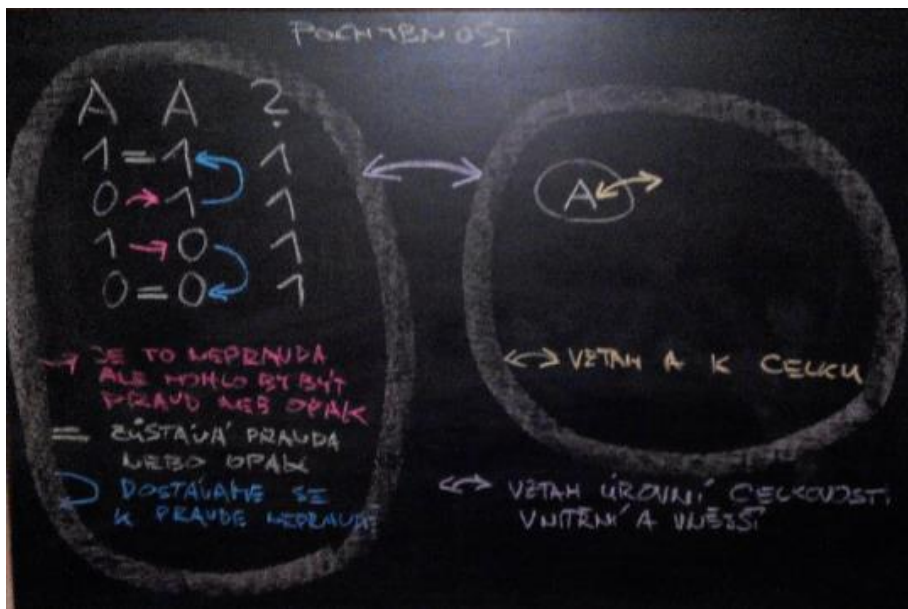 POCHYBNOST
A A ?
1 = 1 1
0 → 1 1
1 → 0 1
0 = 0 1
A
→ JE TO NEPRAVDA
ALE MOHLO BY BÝT
PRAVD NEB OPAK
= ZŮSTÁVÁ PRAVDA
NEBO OPAK
DOSTÁVÁME SE
K PRAVDE NEPRAVDE
↔ VZTAH A K CELKU
↔ VZTAH ÚROVNÍ CELKOVOSTI
VNITŘNÍ A VNĚJŠÍ